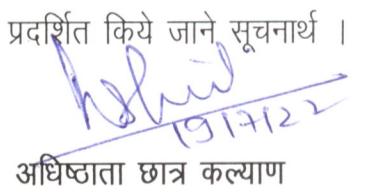 प्रदर्शित किये जाने सूचनार्थ ।
19/7/22
अधिष्ठाता छात्र कल्याण